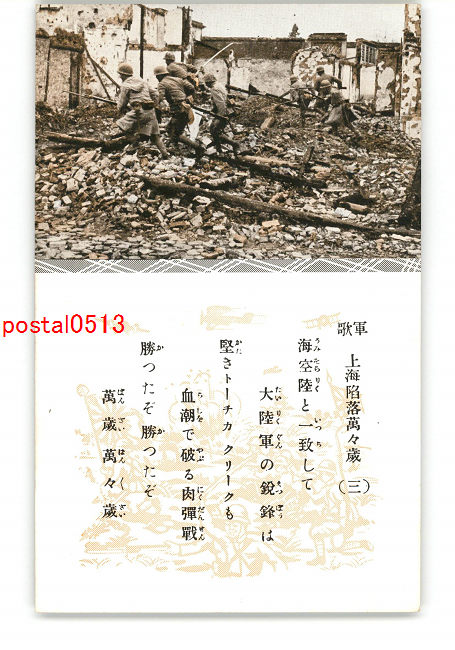 軍歌 上海陥落萬々歳 (三)
海空陸と一致して
大陸軍の鋭鋒は
堅きトーチカ クリークも
血潮で破る肉彈戰
勝つたぞ 勝つたぞ
萬歳 萬々歳
postal0513